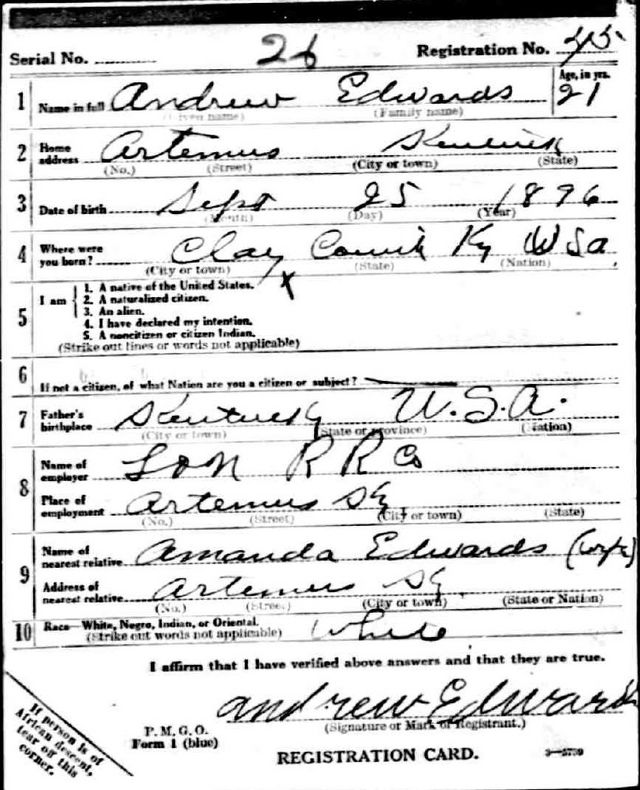 Serial No. 26 Registration No. 45
1 Name in full Andrew Edwards Age, in yrs. 21
(Given name) (Family name)
2 Home address Artemus
(No.) (Street) (City or town) (State)
3 Date of birth Sept 25 1896
(Month) (Day) (Year)
4 Where were you born? Clay Ky USa
(City or town) (State) (Nation)
5 I am
1. A native of the United States. x
2. A naturalized citizen.
3. An alien.
4. I have declared my intention.
5. A noncitizen or citizen Indian.
(Strike out lines or words not applicable)
6 If not a citizen, of what Nation are you a citizen or subject?
7 Father's birthplace Kentucky U.S.A.
(City or town) (State or province) (Nation)
8 Name of employer R R Co
Place of employment Artemus Ky
(No.) (Street) (City or town) (State)
9 Name of nearest relative Amanda Edwards (wife)
Address of nearest relative Artemus Ky
(No.) (Street) (City or town) (State or Nation)
10 Race—White, Negro, Indian, or Oriental. White
(Strike out words not applicable)
I affirm that I have verified above answers and that they are true.
Andrew Edwards
(Signature or Mark of Registrant.)
P. M. G. O.
Form 1 (blue)
REGISTRATION CARD.
3—5739
If person is of
African descent,
tear off this
corner.